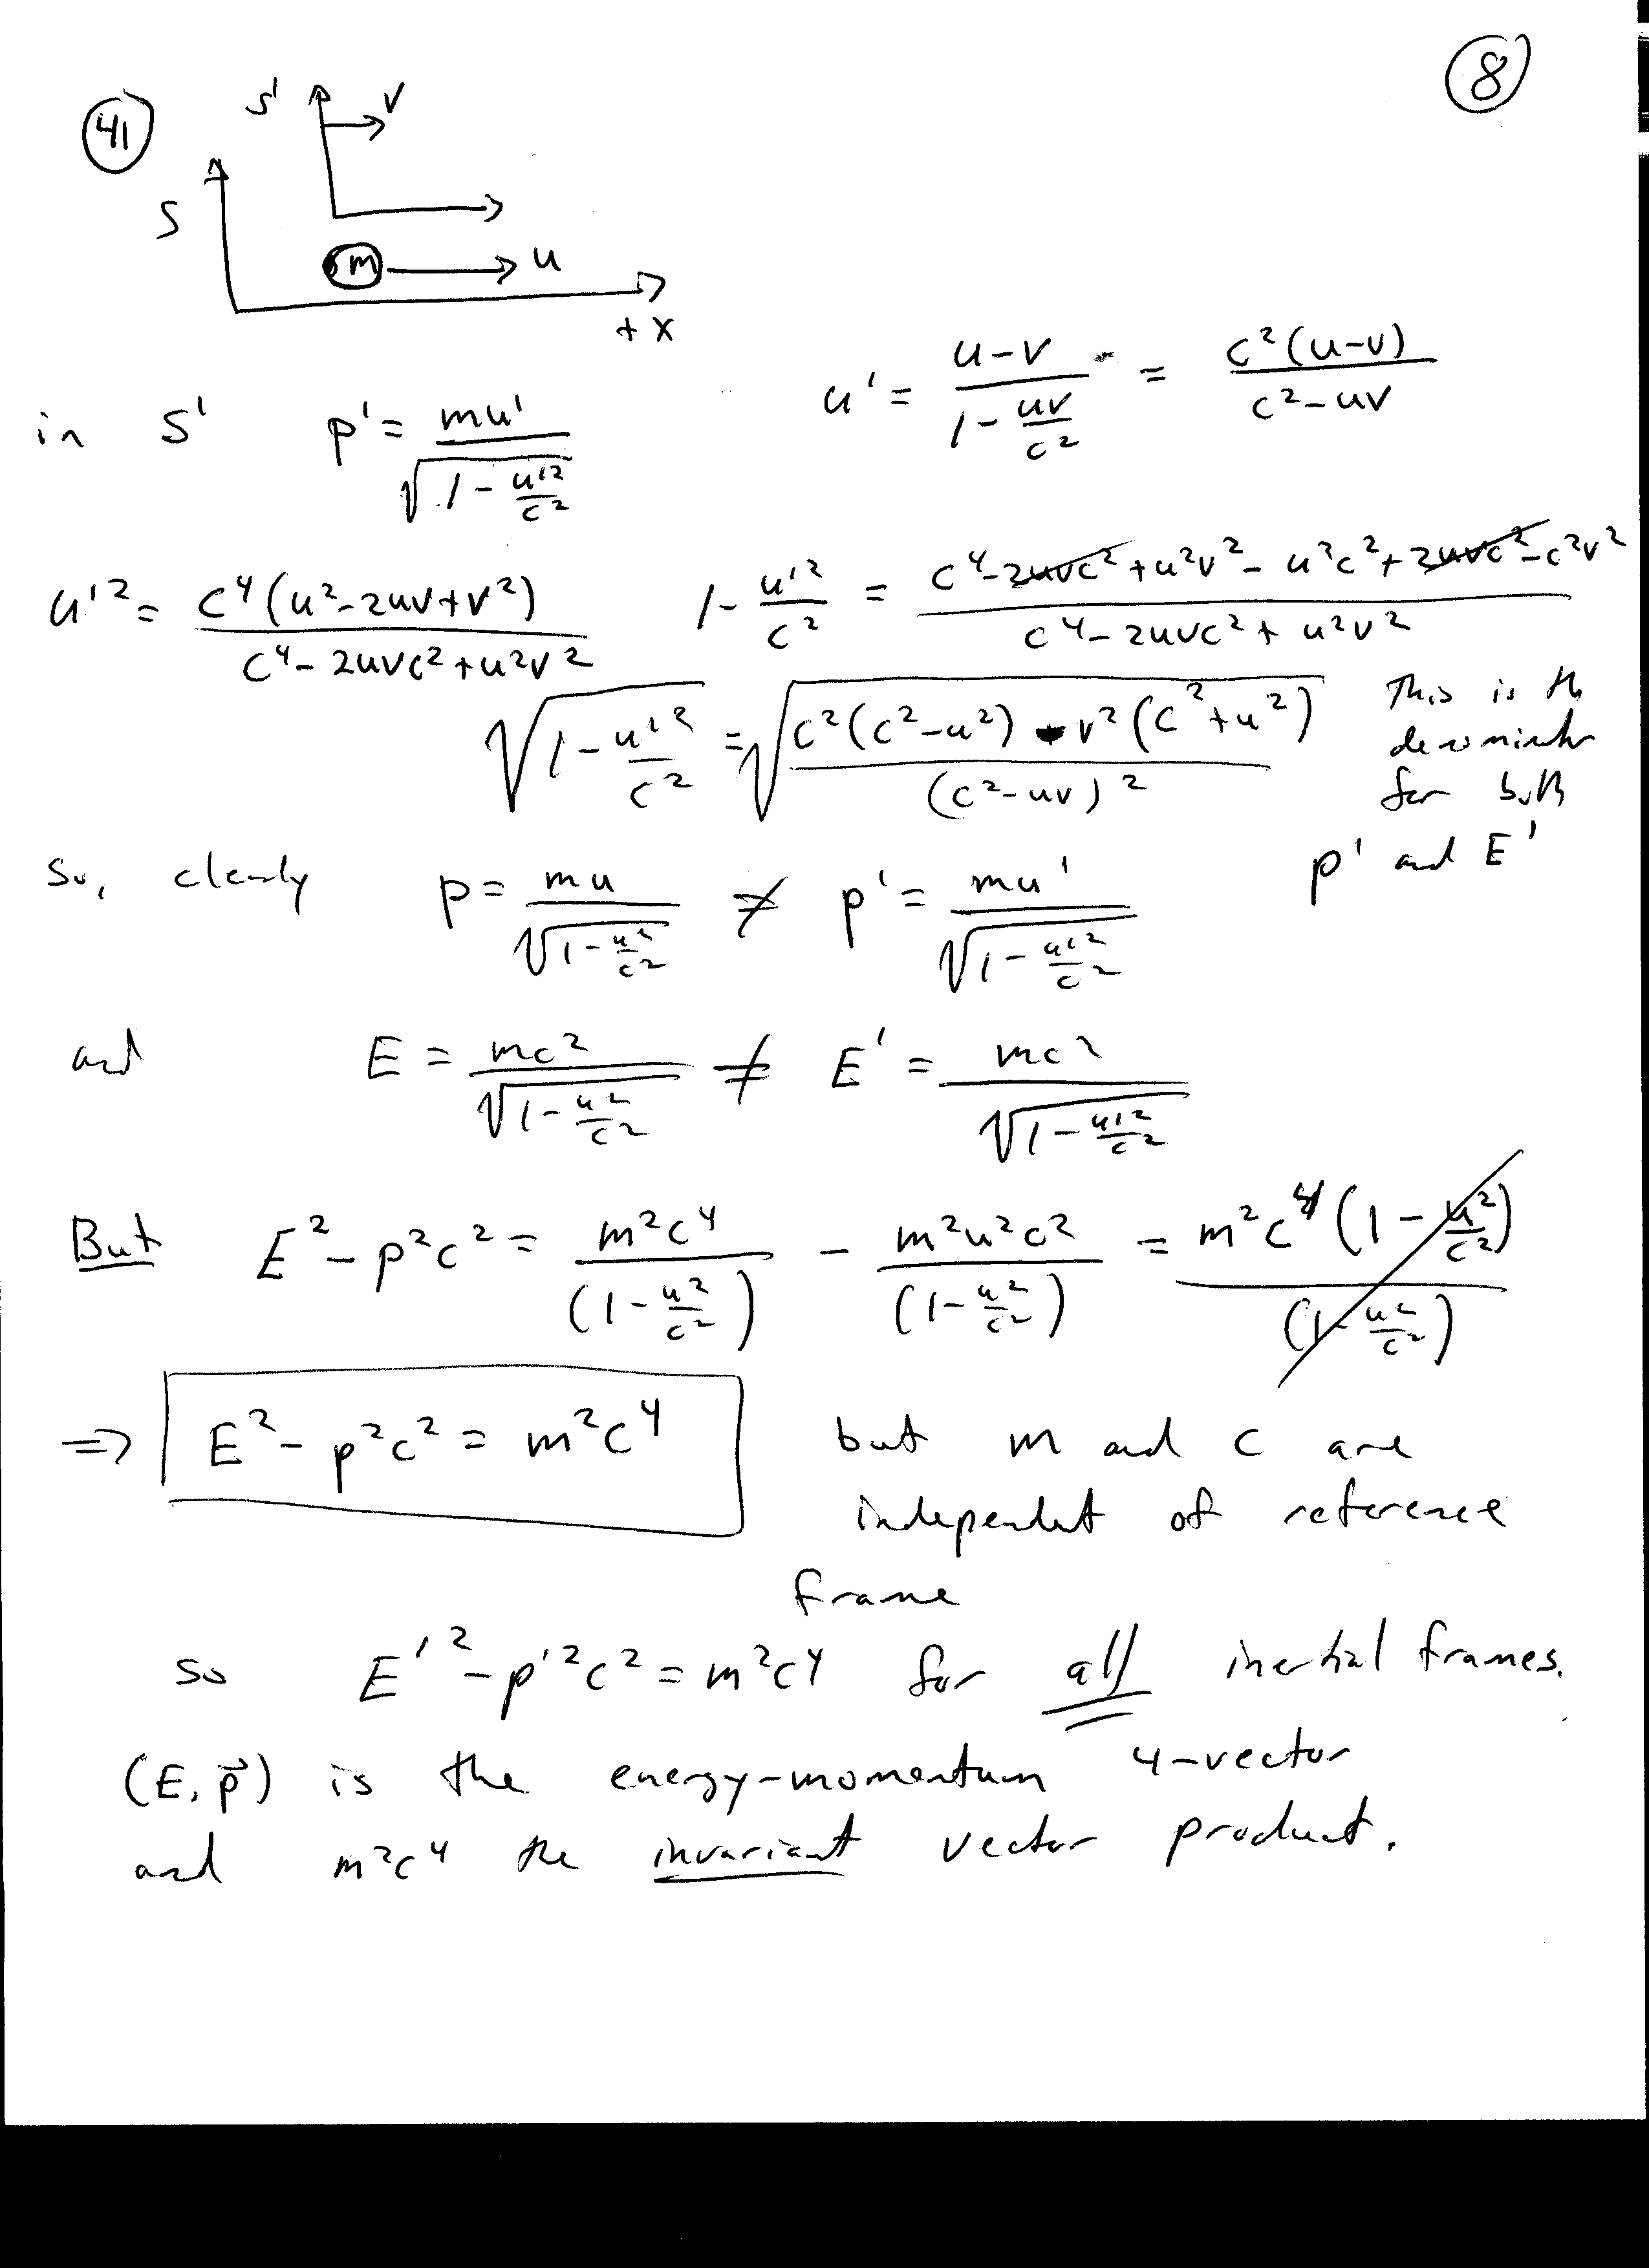 8
41
S' v
S
m u
+ x
u' = \frac{u-v}{1-\frac{uv}{c^2}} = \frac{c^2(u-v)}{c^2-uv}
in S' p' = \frac{mu'}{\sqrt{1-\frac{u'^2}{c^2}}}
u'^2 = \frac{c^4(u^2-2uv+v^2)}{c^4-2uvc^2+u^2v^2} 1-\frac{u'^2}{c^2} = \frac{c^4-2uvc^2+u^2v^2-u^2c^2+2uvc^2-c^2v^2}{c^4-2uvc^2+u^2v^2}
\sqrt{1-\frac{u'^2}{c^2}} = \sqrt{\frac{c^2(c^2-u^2) - v^2(c^2+u^2)}{(c^2-uv)^2}}
This is the
denominator
for both
p' and E'
So, clearly p = \frac{mu}{\sqrt{1-\frac{u^2}{c^2}}} ≠ p' = \frac{mu'}{\sqrt{1-\frac{u'^2}{c^2}}}
and E = \frac{mc^2}{\sqrt{1-\frac{u^2}{c^2}}} ≠ E' = \frac{mc^2}{\sqrt{1-\frac{u'^2}{c^2}}}
But E^2-p^2c^2 = \frac{m^2c^4}{(1-\frac{u^2}{c^2})} - \frac{m^2u^2c^2}{(1-\frac{u^2}{c^2})} = \frac{m^2c^4(1-\frac{u^2}{c^2})}{(1-\frac{u^2}{c^2})}
⇒ E^2-p^2c^2 = m^2c^4 but m and c are
independent of reference
frame
so E'^2-p'^2c^2 = m^2c^4 for all inertial frames.
(E, \vec{p}) is the energy-momentum 4-vector
and m^2c^4 the invariant vector product.